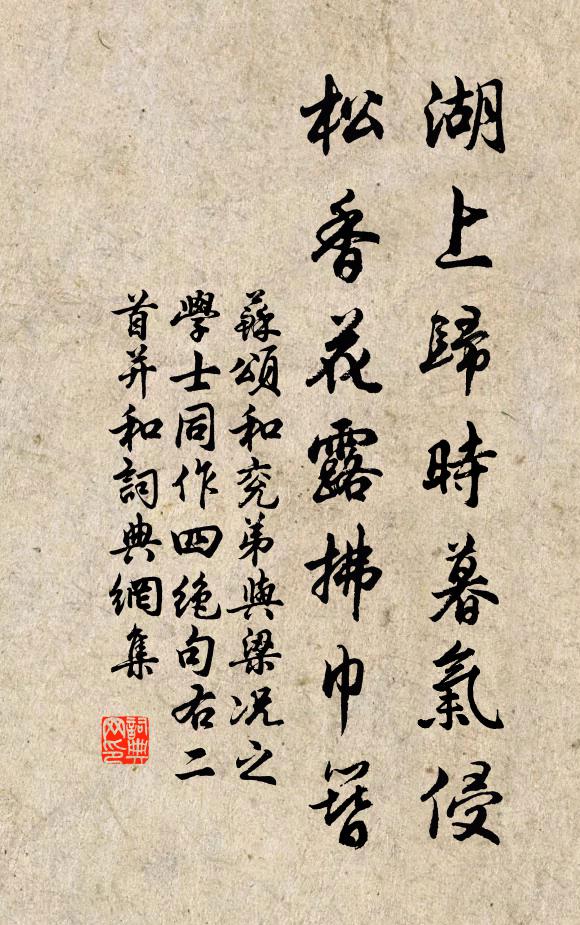 湖上歸時暮氣侵
松香花露拂巾簪
蘇頌和兖弟與梁况之
學士同作四絶句右二
首并和詞典網集
詞典
网印